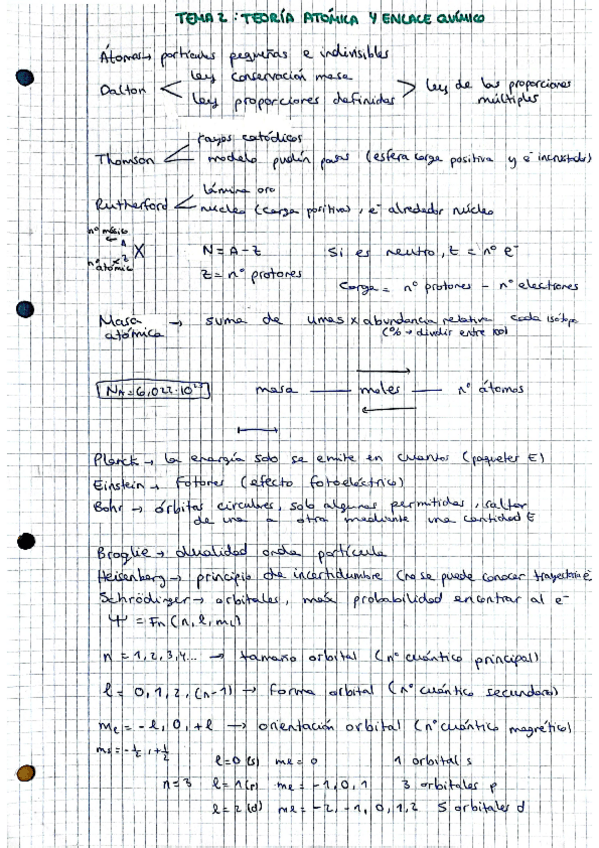 TEMA 2: TEORÍA ATÓMICA Y ENLACE QUÍMICO
Átomos → partículas pequeñas e indivisibles
Dalton < ley conservación masa
ley proporciones definidas > ley de las proporciones múltiples
Thomson < rayos catódicos
modelo pudín pasas (esfera carga positiva y e⁻ incrustados)
Rutherford < lámina oro
núcleo (carga positiva), e⁻ alrededor núcleo
nº másico A X N = A - Z Si es neutro, Z = nº e⁻
nº atómico Z Z = nº protones
Carga = nº protones - nº electrones
Masa atómica → suma de umas x abundancia relativa cada isótopo
(% → dividir entre 100)
NA = 6,022·10²³ masa — moles — nº átomos
Planck → la energía solo se emite en cuantos (paquetes E)
Einstein → Fotones (efecto fotoeléctrico)
Bohr → órbitas circulares, solo algunas permitidas, saltar
de una a otra mediante una cantidad E
Broglie → dualidad onda partícula
Heisenberg → principio de incertidumbre (no se puede conocer trayectoria e⁻
Schrödinger → orbitales, más probabilidad encontrar al e⁻
Ψ = Fn (n, l, ml)
n = 1, 2, 3, 4... → tamaño orbital (nº cuántico principal)
l = 0, 1, 2, (n-1) → forma orbital (nº cuántico secundario)
ml = -l, 0, +l → orientación orbital (nº cuántico magnético)
ms = -½, +½
l = 0 (s) ml = 0 1 orbital s
n = 3 l = 1 (p) ml = -1, 0, 1 3 orbitales p
l = 2 (d) ml = -2, -1, 0, 1, 2 5 orbitales d